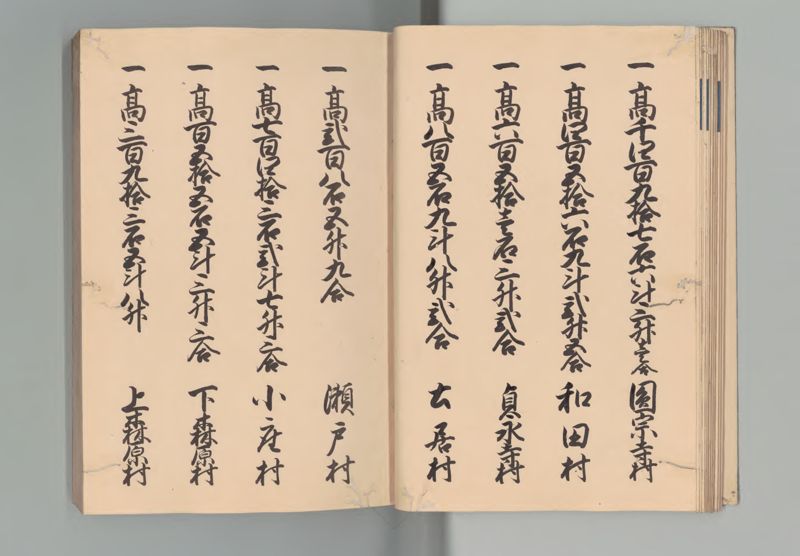 一 高千四百九拾七石六斗三升壱合 圓宗寺村
一 高四百五拾六石九斗弐升五合 和田村
一 高六百五拾壱石三升弐合 貞永寺村
一 高八百五石九斗八升弐合 古居村
一 高弐百八石五升九合 瀬戸村
一 高七百四拾三石弐斗七升三合 小庄村
一 高百五拾五石五斗三升三合 下森原村
一 高三百九拾三石五斗八升 上森原村